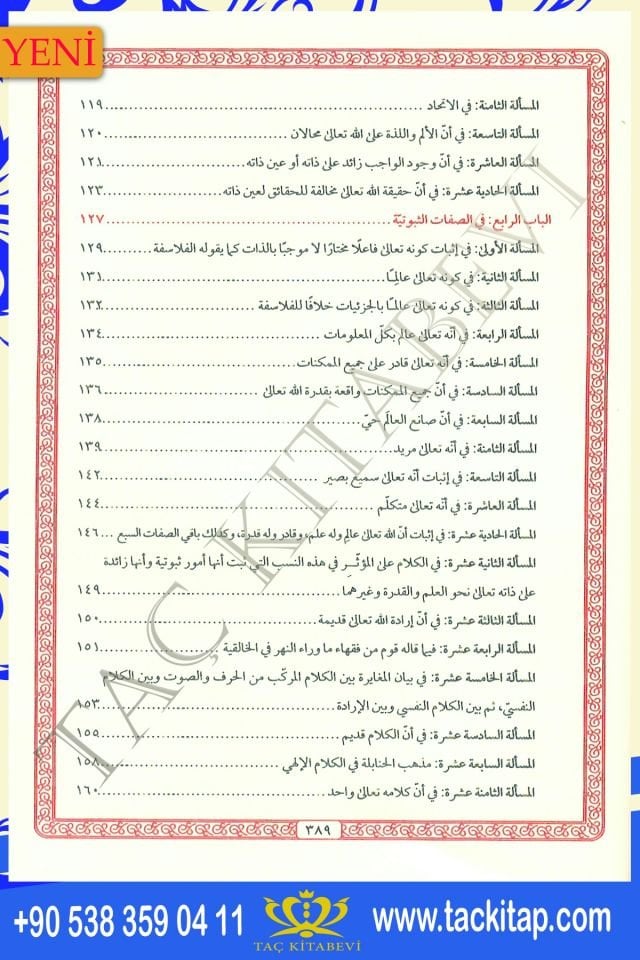 YENİ
المسألة الثامنة: في الاتحاد ............ ١١٩
المسألة التاسعة: في أنّ الألم واللذة على الله تعالى محالان ............ ١٢٠
المسألة العاشرة: في أنّ وجود الواجب زائد على ذاته أو عين ذاته ............ ١٢١
المسألة الحادية عشرة: في أنّ حقيقة الله تعالى مخالفة للحقائق لعين ذاته ............ ١٢٣
الباب الرابع: في الصفات الثبوتيّة ............ ١٢٧
المسألة الأولى: في إثبات كونه تعالى فاعلًا مختارًا لا موجبًا بالذات كما يقوله الفلاسفة ............ ١٢٩
المسألة الثانية: في كونه تعالى عالمًا ............ ١٣١
المسألة الثالثة: في كونه تعالى عالمًا بالجزئيات خلافًا للفلاسفة ............ ١٣٢
المسألة الرابعة: في أنّه تعالى عالم بكلّ المعلومات ............ ١٣٤
المسألة الخامسة: في أنّه تعالى قادر على جميع الممكنات ............ ١٣٥
المسألة السادسة: في أنّ جميع الممكنات واقعة بقدرة الله تعالى ............ ١٣٦
المسألة السابعة: في أنّ صانع العالَم حيّ ............ ١٣٨
المسألة الثامنة: في أنّه تعالى مريد ............ ١٣٩
المسألة التاسعة: في إثبات أنّه تعالى سميع بصير ............ ١٤٢
المسألة العاشرة: في أنّه تعالى متكلّم ............ ١٤٤
المسألة الحادية عشرة: في إثبات أنّ الله تعالى عالم وله علم، وقادر وله قدرة، وكذلك باقي الصفات السبع ... ١٤٦
المسألة الثانية عشرة: في الكلام على المؤثّر في هذه النسب التي ثبت أنها أمور ثبوتية وأنها زائدة
على ذاته تعالى نحو العلم والقدرة وغيرهما ............ ١٤٩
المسألة الثالثة عشرة: في أنّ إرادة الله تعالى قديمة ............ ١٥٠
المسألة الرابعة عشرة: فيما قاله قوم من فقهاء ما وراء النهر في الخالقية ............ ١٥١
المسألة الخامسة عشرة: في بيان المغايرة بين الكلام المركّب من الحرف والصوت وبين الكلام
النفسيّ، ثم بين الكلام النفسي وبين الإرادة ............ ١٥٣
المسألة السادسة عشرة: في أنّ الكلام قديم ............ ١٥٥
المسألة السابعة عشرة: مذهب الحنابلة في الكلام الإلهي ............ ١٥٨
المسألة الثامنة عشرة: في أنّ كلامه تعالى واحد ............ ١٦٠
٣٨٩
TAÇ KITABEVI
+90 538 359 04 11
TAÇ KİTABEVİ
www.tackitap.com